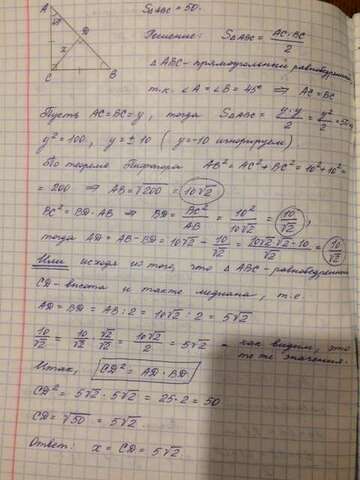 A
45°
D
x
C
B
S△ABC = 50.
Решение: S△ABC = AC·BC / 2
△ABC - прямоугольный равнобедренный,
т.к. ∠A = ∠B = 45° ⇒ AC = BC
Пусть AC = BC = y, тогда S△ABC = y·y / 2 = y² / 2 = 50 ⇒
y² = 100, y = ± 10 (y = -10 игнорируем).
По теореме Пифагора AB² = AC² + BC² = 10² + 10² =
= 200 ⇒ AB = √200 = 10√2
BC² = BD·AB ⇒ BD = BC² / AB = 10² / 10√2 = 10 / √2,
тогда AD = AB - BD = 10√2 - 10 / √2 = 10√2·√2 - 10 / √2 = 10 / √2
Или исходя из того, что △ABC - равнобедренный
CD - высота и также медиана, т.е
AD = BD = AB : 2 = 10√2 : 2 = 5√2
10 / √2 = 10 / √2 · √2 / √2 = 10√2 / 2 = 5√2 - как видим, это
те же значения.
Итак, CD² = AD·BD
CD² = 5√2 · 5√2 = 25·2 = 50
CD = √50 = 5√2.
Ответ: x = CD = 5√2